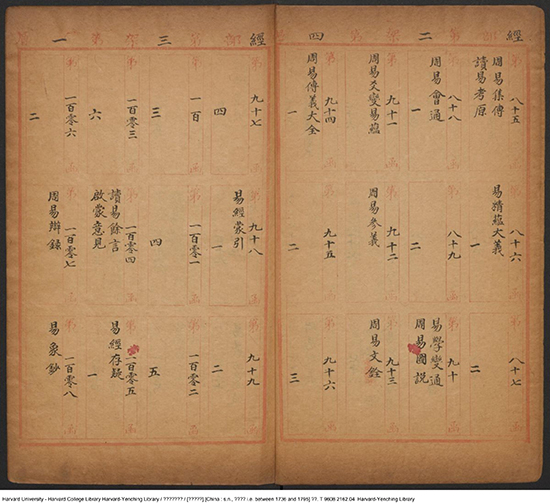 經 二 四
第八十五函
周易集傳
讀易考原
第八十六函
易精蘊大義
一
第八十七函
二
第八十八函
周易會通
一
第八十九函
二
第九十函
易學變通
周易圖說
第九十一函
周易爻變易蘊
第九十二函
周易參義
第九十三函
周易文詮
第九十四函
周易傳義大全
一
第九十五函
二
第九十六函
三
經 三 一
第九十七函
四
第九十八函
易經蒙引
一
第九十九函
二
第一百函
三
第一百零一函
四
第一百零二函
五
第一百零三函
六
第一百零四函
讀易餘言
啟蒙意見
第一百零五函
易經存疑
一
第一百零六函
二
第一百零七函
周易辯錄
第一百零八函
易象鈔
Harvard University - Harvard College Library Harvard-Yenching Library / ??????? / [?????] [China : s.n., ???? i.e. between 1736 and 1795] ??. T 9608 2162.04 Harvard-Yenching Library